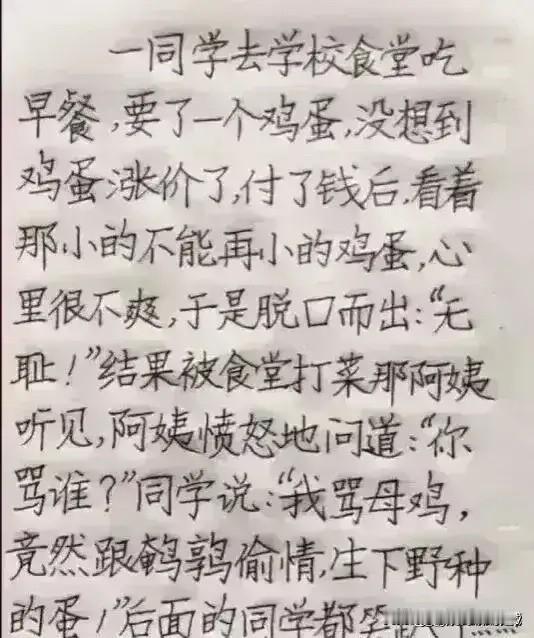 一同学去学校食堂吃
早餐,要了一个鸡蛋,没想到
鸡蛋涨价了,付了钱后,看着
那小的不能再小的鸡蛋,心
里很不爽,于是脱口而出:“无
耻!”结果被食堂打菜那阿姨
听见,阿姨愤怒地问道:“你
骂谁?”同学说:“我骂母鸡,
竟然跟鹌鹑偷情,生下野种
的蛋!”后面的同学都